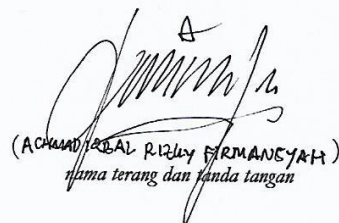 (ACHMAD IQBAL RIZKY FIRMANSYAH)
nama terang dan tanda tangan